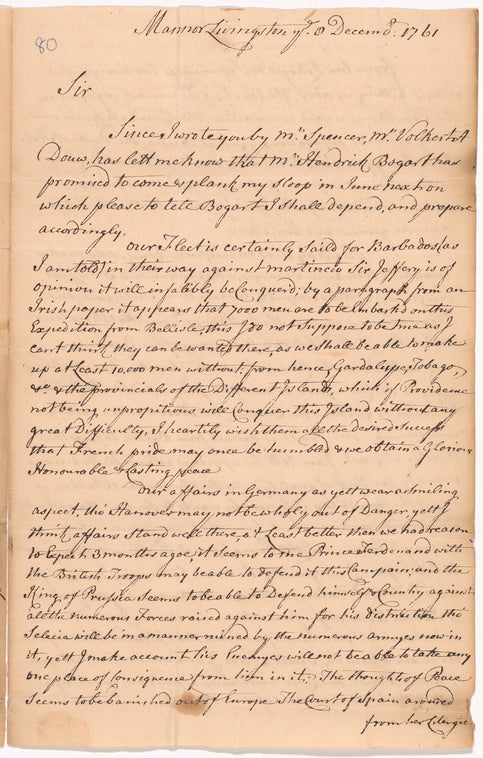 80
Mannor Livingston ye. 8 Decemr. 1761
Sir
Since I wrote you by Mr. Spencer, Mr. Volkert A
Douw, has lett me know that Mr. Hendrick Bogart has
promised to come & plank my sloop in June next on
which please to tell Bogart I shall depend, and prepare
accordingly.
Our Fleet is certainly Saild for Barbados (as
I am told) in their way against martineco Sir Jeffery is of
opinion it will infalibly be Conquerd; by a paragraph from an
Irish paper it appears that 7000 men are to be Imbarkd on this
Expedition from Bellisle, this I do not Suppose to be true as I
cant think they can be wanted there, as we shall be able to make
up at Least 10,000 men without; from hence, Gardalupe, Tobago,
&c. & the provincials of the Different Islands, which if Providence
not being unpropitious will Conquer this Island without any
great Difficulty, I heartily wish them all the desired success
that French pride may once be humbled & we obtain a Glorious
Honourable & Lasting peace
Our affairs in Germany as yett wear a Smiling
aspect, tho Hanover may not be wholy out of Danger, yett I
think affairs Stand well there, at Least better then we had reason
to Expect 3 months agoe, it seems to me Prince Ferdenand with
the British Troops may be able to defend it this Campain, and the
King, of Prussia Seems to be able to Defend himself & Country against
all the numerous Forces raised against him for his distruction tho
Selecia will be in a manner ruined by the numerous armyes now in
it, yett I make account his Enemyes will not be able to take any
one place of Consiquence from him in it, The thoughts of Peace
Seems to be banished out of Europe The Court of Spain
from her